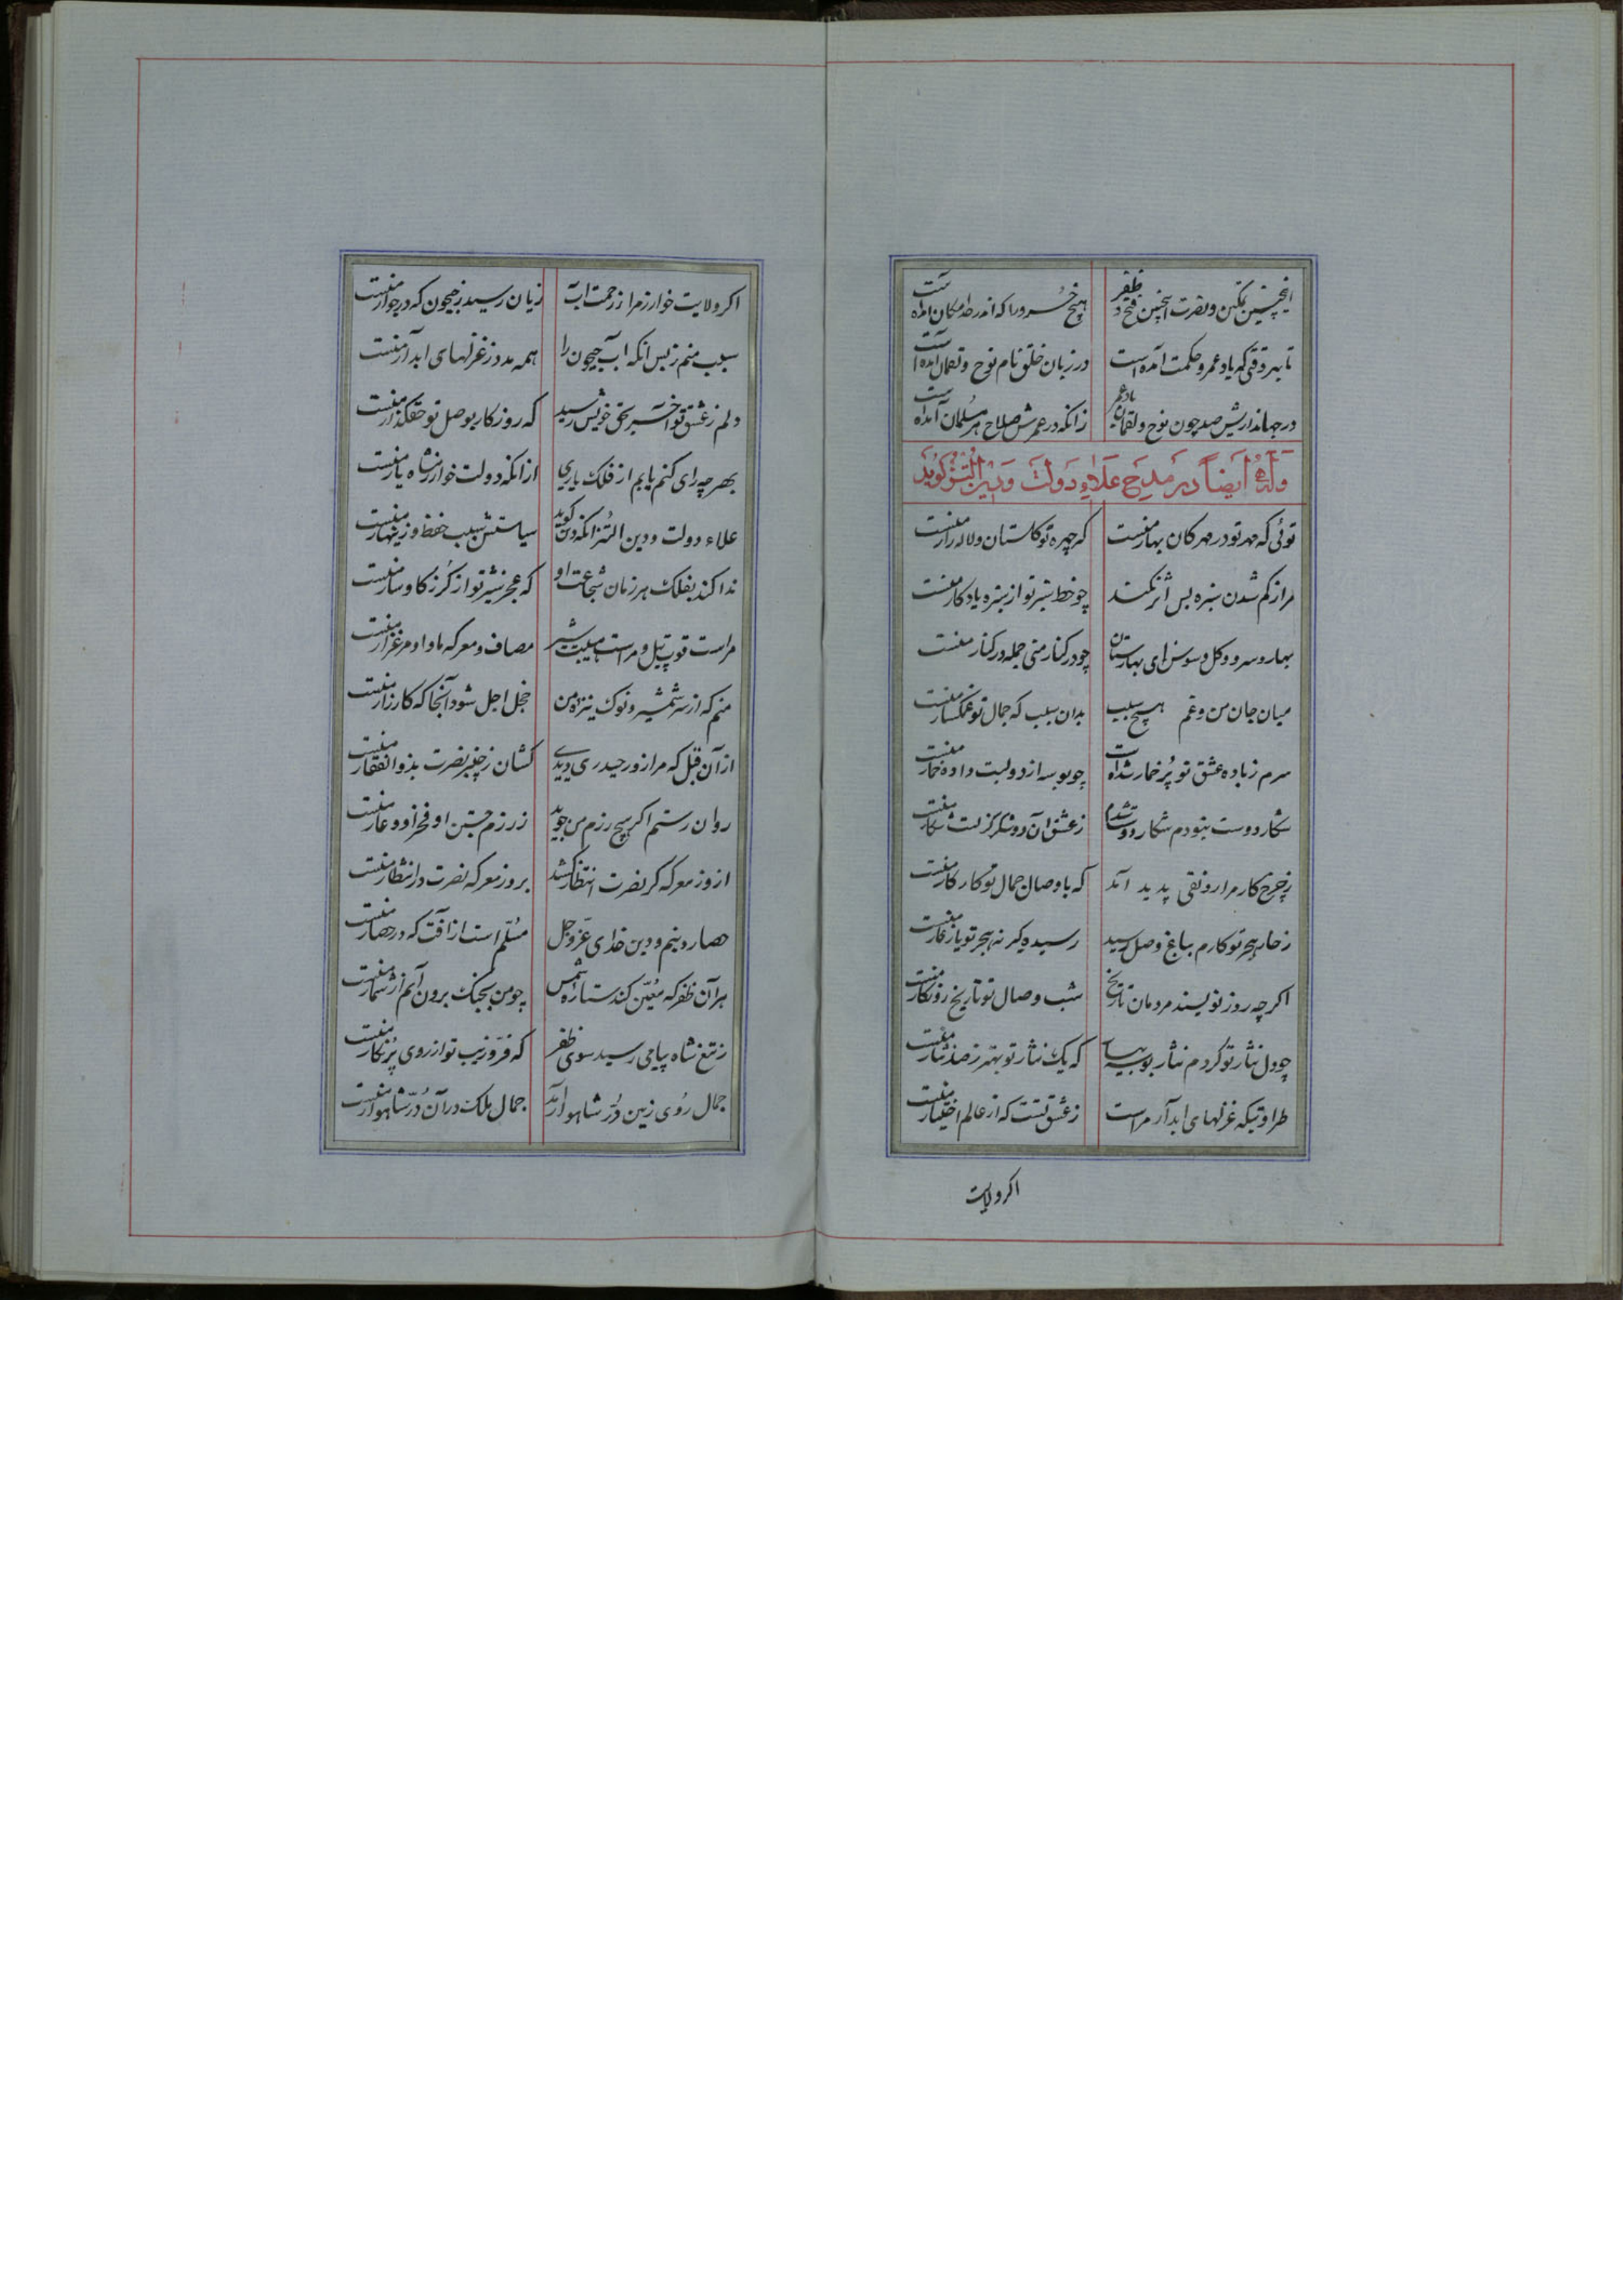 اینچنین تمکین و نصرت اینچنین فتح و ظفر هیچ خسرو را که اندر حد امکان آمده است
تا بهر وقتی که یاد عمر و حکمت آمده است در زبان خلق نام نوح و لقمان آمده است
در جهانداریش صد چون نوح و لقمان یاد عمر زانکه در عمرش صلاح هر مسلمان آمده است
وله ایضاً در مدح علاء دولت و دین اتسز کوید
توئی که مهر تو در مهرکان بهار منست که چهره تو کلستان و لاله‌زار منست
مرا ز کم شدن سبزه بس اثر نکند چو خط سبز تو از سبزه یادکار منست
بهار و سرو و کل و سوسن ای بهارستان چو در کنار منی جمله در کنار منست
میان جان من و غم هیچ سبب بدان سبب که جمال تو غمکسار منست
سرم ز باده عشق تو پر خمار شده است چو بوسه از دو لبت داده خمار منست
شکار دوست نبودم شکار دوست شدم ز عشق آن دو شکر کز لبت شکار منست
ز چرخ کار مرا رونقی پدید آمد که با وصال جمال تو کار کار منست
ز خار هجر تو کارم بباغ وصل رسید رسیده کیر نه هجر تو یار غار منست
اکر چه روز نویسند مردمان تاریخ شب وصال تو تاریخ روزکار منست
چو دل نثار تو کردم نثار بوسه بیار که یک نثار تو بهتر ز صد نثار منست
طراوتیکه غزلهای آبدار مراست ز عشق تست که از عالم اختیار منست
اکر ولایت
اکر ولایت خوارزم را ز رحمت آب زیان رسید ز جیحون که در جوار منست
سبب منم ز پس آنکه آب جیحون را همه مدد ز غزلهای آبدار منست
دلم ز عشق تو آخر بحق خویش رسید که روزکار بوصل تو حقکذار منست
بهر چه رای کنم یابم از فلک یاری از آنکه دولت خوارزمشاه یار منست
علاء دولت و دین اتسز آنکه دین کوید سیاستش سبب حفظ و زینهار منست
ندا کند بفلک هر زمان شجاعت او که عجز شیر تو از کرز کاوسار منست
مراست قوت پیل و مراست هیبت شیر مصاف و معرکه ماوا و مرغزار منست
منم که از سر شمشیر و نوک نیزه من خجل اجل شود آنجا که کارزار منست
از آن قبل که مرا زور حیدری دیدی کشان ز خیبر نصرت بذوالفقار منست
روان رستم اکر هیچ رزم من جوید ز رزم جستن او فخر او و عار منست
ار روز معرکه کر نصرت انتظار کشد بروز معرکه نصرت در انتظار منست
حصار دینم و دین خدای عز و جل مسلم است از آفت که در حصار منست
هر آن ظفر که معین کند ستاره شمس چو من بجنک برون آیم از شمار منست
ز تیغ شاه پیامی رسید سوی ظفر که فر و زیب تو از روی پر نکار منست
جمال روی زمین در شاهوار آمد جمال ملک در آن در شاهوار منست